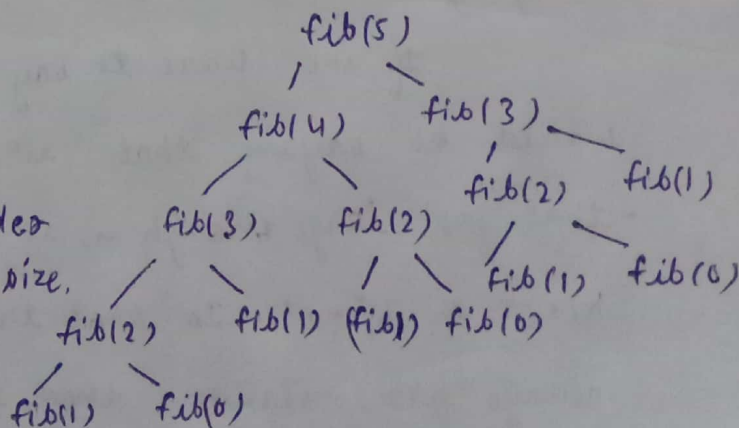 fib(5)
fib(4) fib(3)
fib(3) fib(2) fib(2) fib(1)
size.
fib(2) fib(1) (fib1) fib(0) fib(1) fib(0)
fib(1) fib(0)